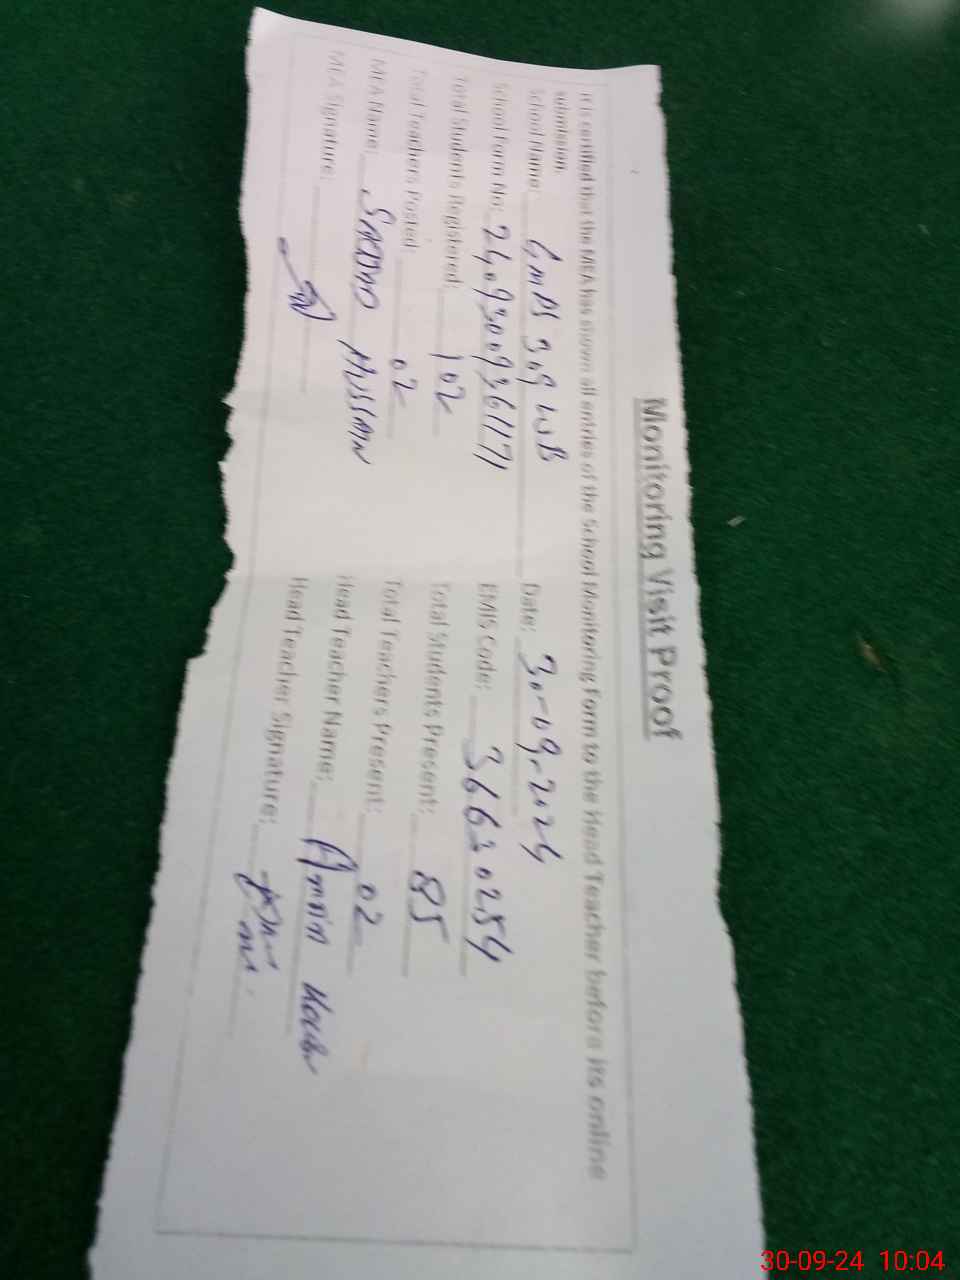 Monitoring Visit Proof
It is certified that the MEA has shown all entries of the School Monitoring Form to the Head Teacher before its online
submission.
School Name: GMPS 309 WB Date: 30-09-2024
School Form No: EMIS Code: 36620254
Total Students Registered: 102 Total Students Present: 85
Total Teachers Posted: 02 Total Teachers Present: 02
MEA Name: SAJJAD HUSSAIN Head Teacher Name:
MEA Signature: Head Teacher Signature:
30-09-24 10:04